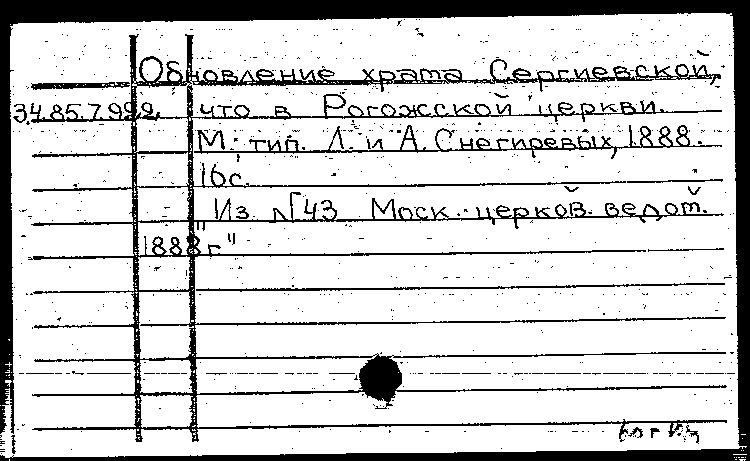 Обновление храма Сергиевской,
34.85.7.992. что в Рогожской церкви.
М. тип. Л. и А. Снегиревых, 1888.
16с.
"Из №43 Моск. церков. ведом.
1888г"